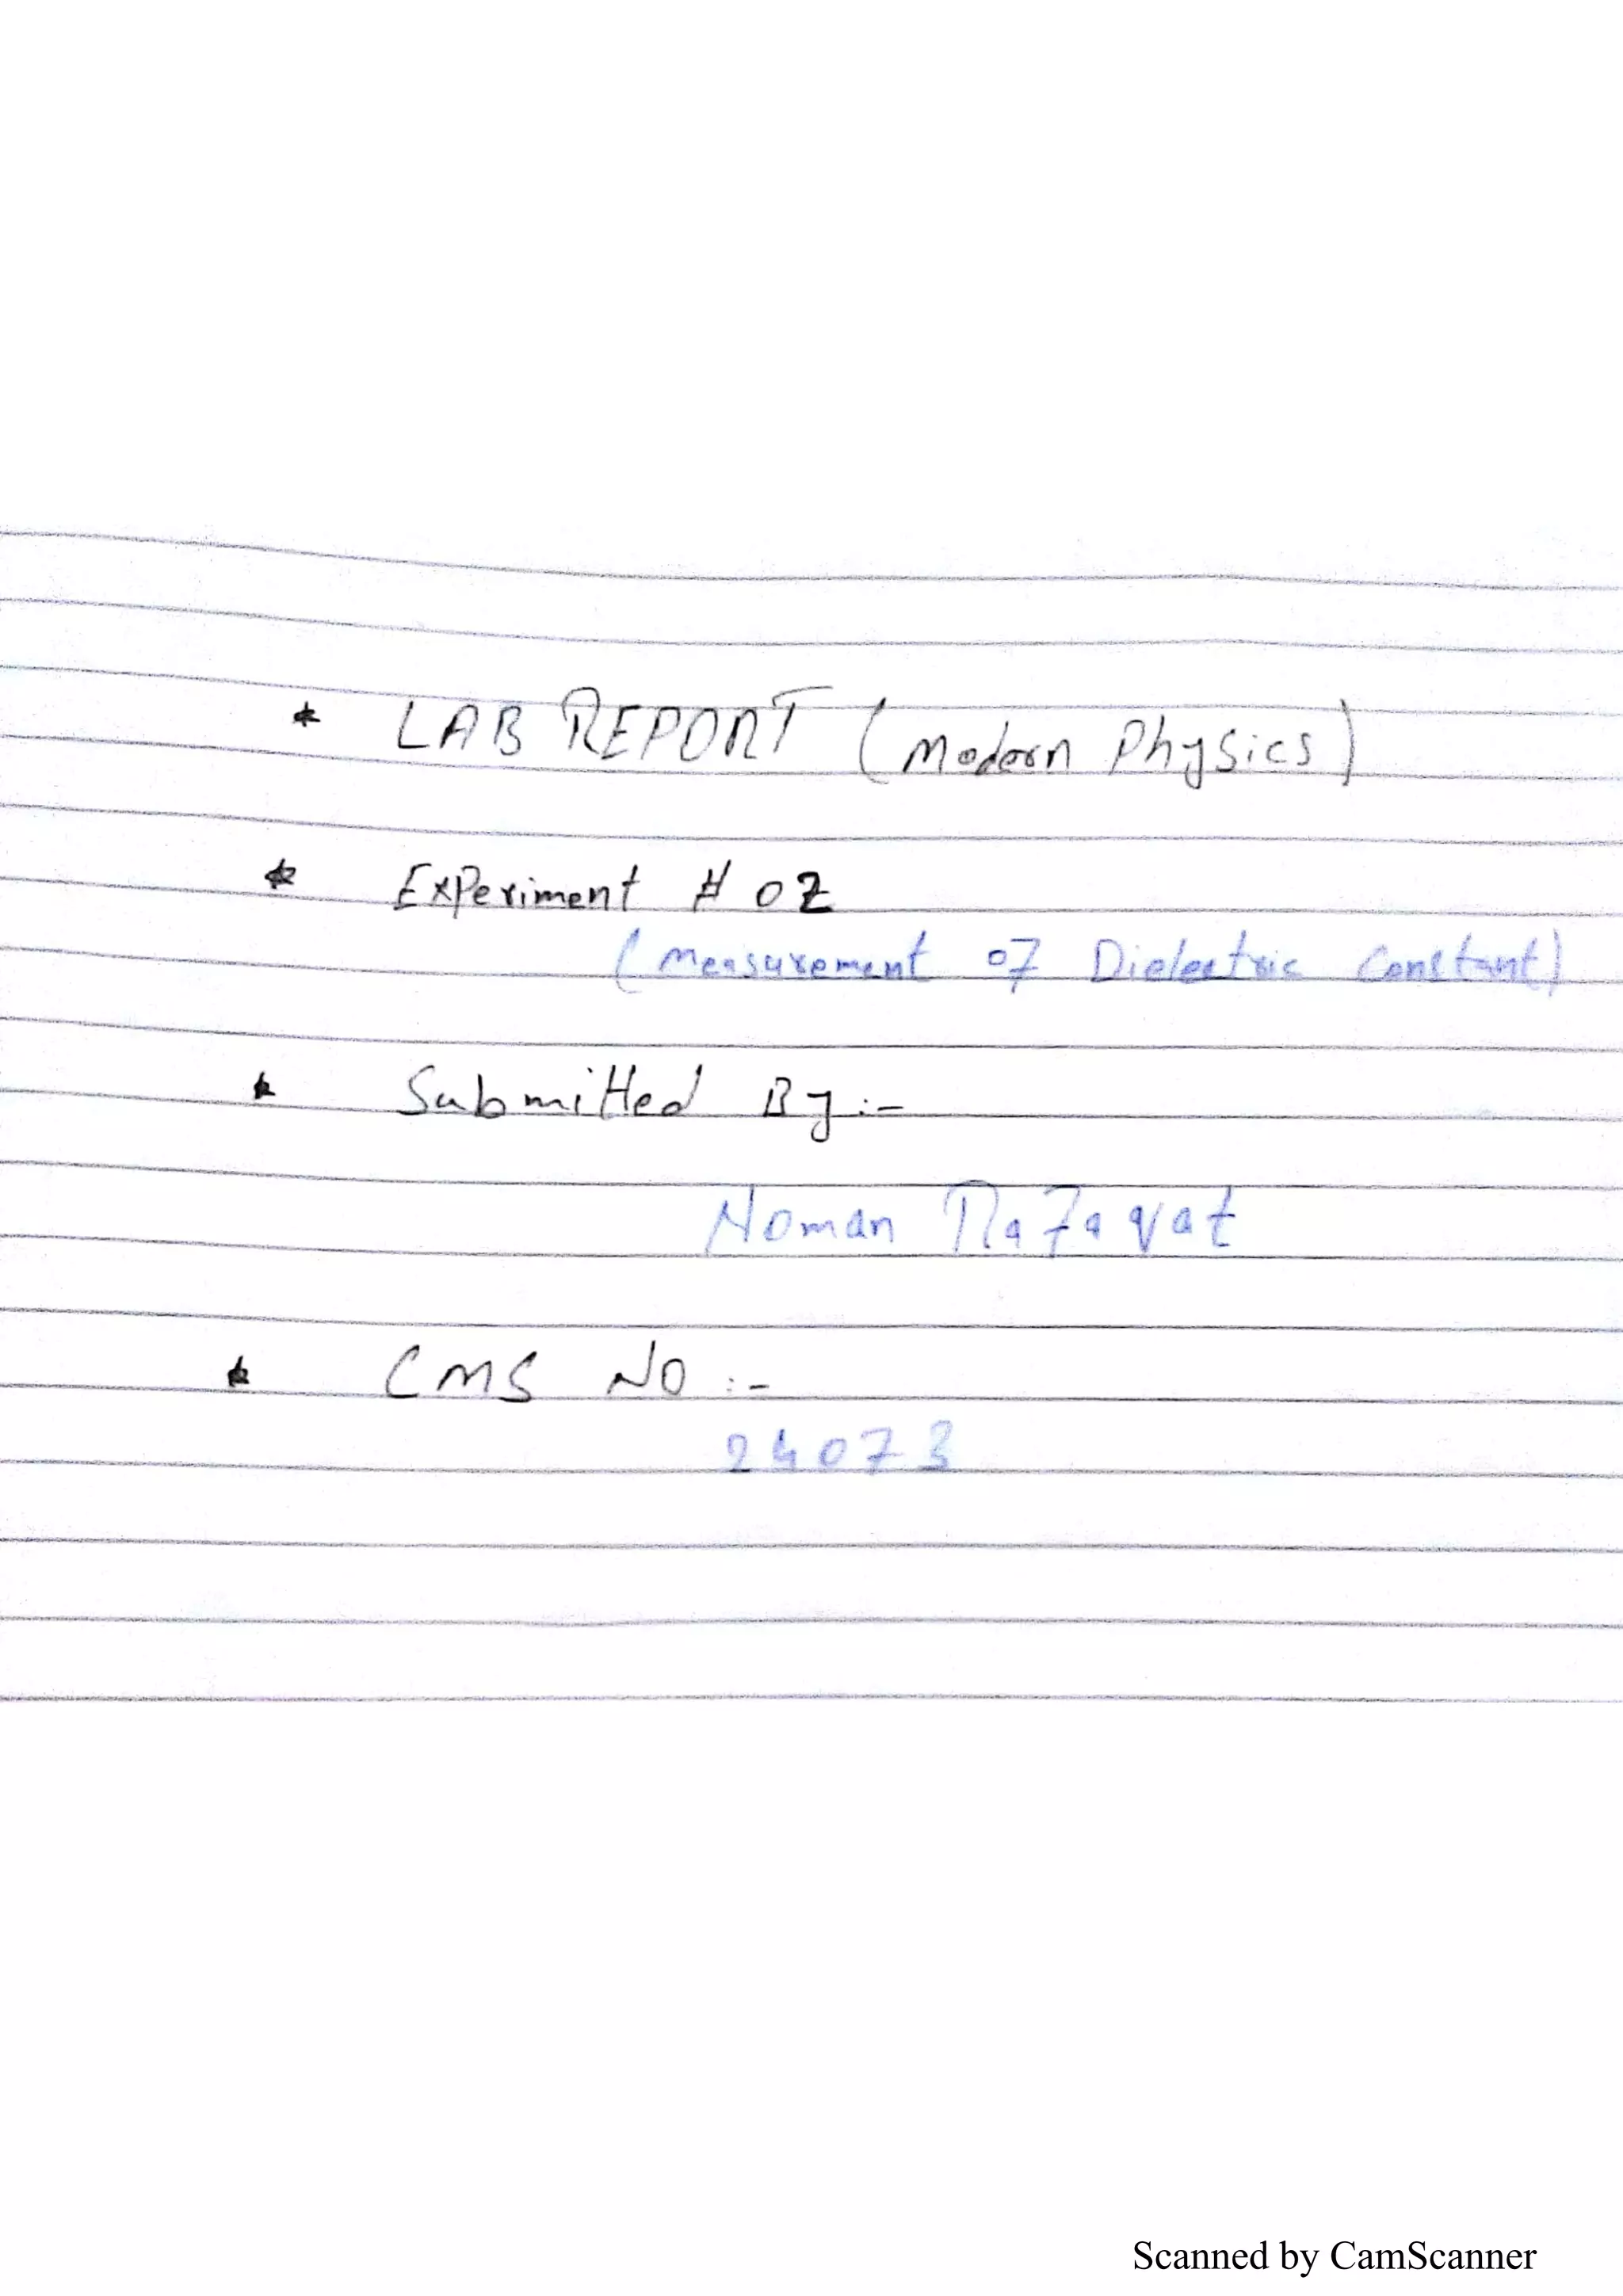 * LAB REPORT (Modern Physics)
* Experiment # 02
(Measurement of Dielectric Constant)
* Submitted By:-
Noman Rafaqat
* CMS NO:-
24073
Scanned by CamScanner